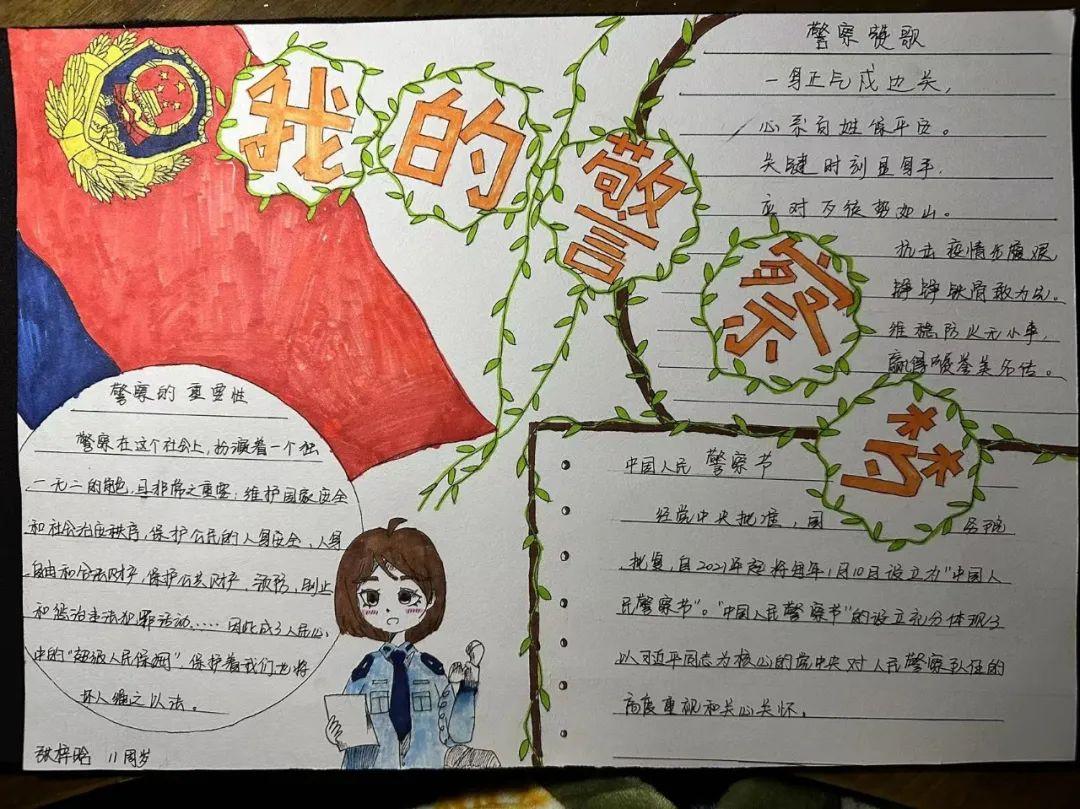 我的警察梦
警察赞歌
一身正气戍边关,
心系百姓保平安。
关键时刻显身手,
应对万势如山。
抗击疫情
铮铮铁骨敢为先。
维稳防火无小事,
赢得赞誉美名传。
警察的重要性
警察在这个社会上,扮演着一个独
一无二的角色,且非常之重要:维护国家安全
和社会治安秩序,保护公民的人身安全、人身
自由和合法财产,保护公共财产,预防、制止
和惩治违法犯罪活动……因此成了人民心
中的"超级人民保姆",保护着我们也将
坏人绳之以法。
张梓晗 11周岁
中国人民警察节
经党中央批准,国务院
批复,自2021年起将每年1月10日设立为"中国人
民警察节"。"中国人民警察节"的设立充分体现了
以习近平同志为核心的党中央对人民警察队伍的
高度重视和关心关怀。